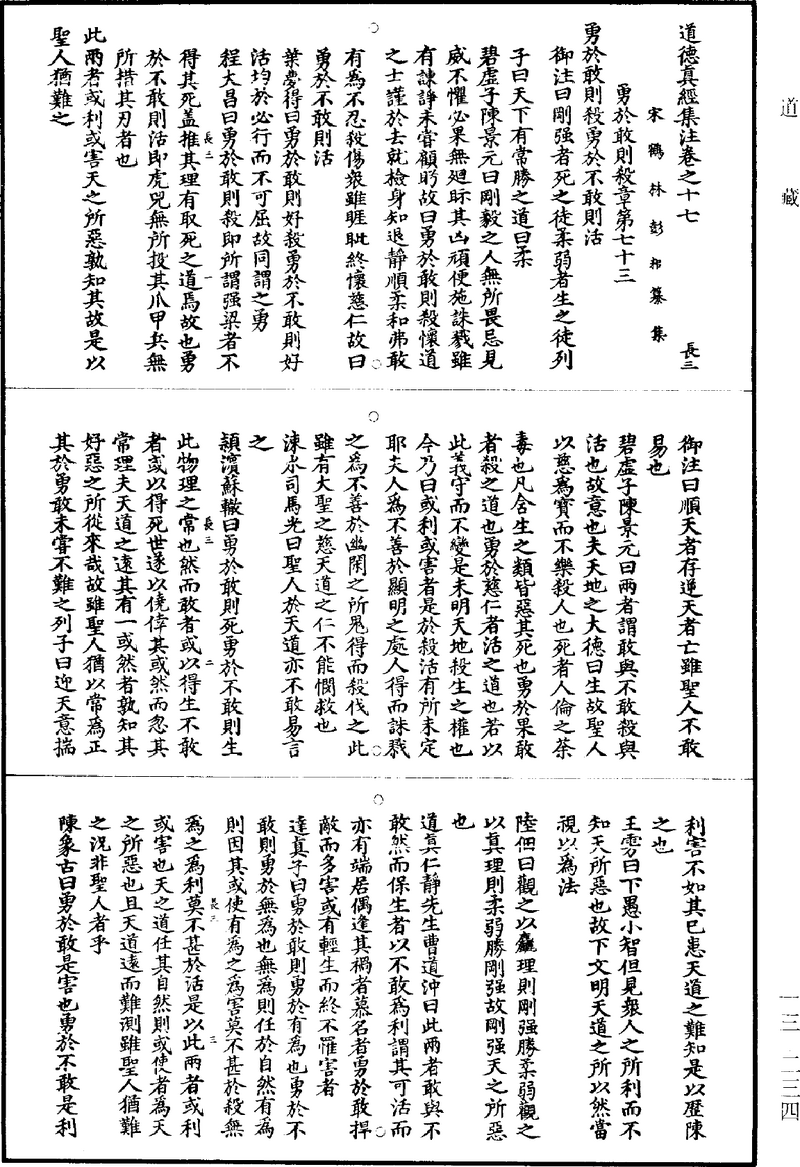 道藏
道德真經集注卷之十七
長三
宋鶴林彭耜纂集
勇於敢則殺章第七十三
勇於敢則殺勇於不敢則活
御注曰剛强者死之徒柔弱者生之徒列
子曰天下有常勝之道曰柔
碧虛子陳景元曰剛毅之人無所畏忌見
威不懼必果無廻眎其凶頑便施誅戮雖
有諫諍未嘗顧眄故曰勇於敢則殺懷道
之士謹於去就檢身知退靜順柔和弗敢
有為不忍殺傷衆雖睚眦終懷慈仁故曰
勇於不敢則活
葉夢得曰勇於敢則好殺勇於不敢則好
活均於必行而不可屈故同謂之勇
程大昌曰勇於敢則殺即所謂强梁者不
得其死蓋推其理有取死之道焉故也勇
於不敢則活即虎兕無所投其爪甲兵無
所措其刃者也
此兩者或利或害天之所惡孰知其故是以
聖人猶難之
長三
一
御注曰順天者存逆天者亡雖聖人不敢
易也
碧虛子陳景元曰兩者謂敢與不敢殺與
活也故意也夫天地之大德曰生故聖人
以慈為寶而不樂殺人也死者人倫之荼
毒也凡含生之類皆惡其死也勇於果敢
者殺之道也勇於慈仁者活之道也若以
此義守而不變是未明天地殺生之權也
今乃曰或利或害者是於殺活有所未定
耶夫人為不善於顯明之處人得而誅戮
之為不善於幽闇之所鬼得而殺伐之此
雖有大聖之慈天道之仁不能憫救也
涑水司馬光曰聖人於天道亦不敢易言
之
潁濱蘇轍曰勇於敢則死勇於不敢則生
此物理之常也然而敢者或以得生不敢
者或以得死世遂以僥倖其或然而忽其
常理夫天道之遠其有一或然者孰知其
好惡之所從來哉故雖聖人猶以常為正
其於勇敢未嘗不難之列子曰迎天意揣
長三
二
利害不如其已患天道之難知是以歷陳
之也
王雱曰下愚小智但見衆人之所利而不
知天所惡也故下文明天道之所以然當
視以為法
陸佃曰觀之以麤理則剛强勝柔弱觀之
以真理則柔弱勝剛强故剛强天之所惡
也
道真仁靜先生曹道沖曰此兩者敢與不
敢然而保生者以不敢為利謂其可活而
亦有端居偶逢其禍者慕名者勇於敢捍
敵而多害或有輕生而終不罹害者
達真子曰勇於敢則勇於有為也勇於不
敢則勇於無為也無為則任於自然有為
則因其或使有為之為害莫不甚於殺無
為之為利莫不甚於活是以此兩者或利
或害也天之道任其自然則或使者為天
之所惡也且天道遠而難測雖聖人猶難
之況非聖人者乎
陳象古曰勇於敢是害也勇於不敢是利
長三
三
一三—二三四